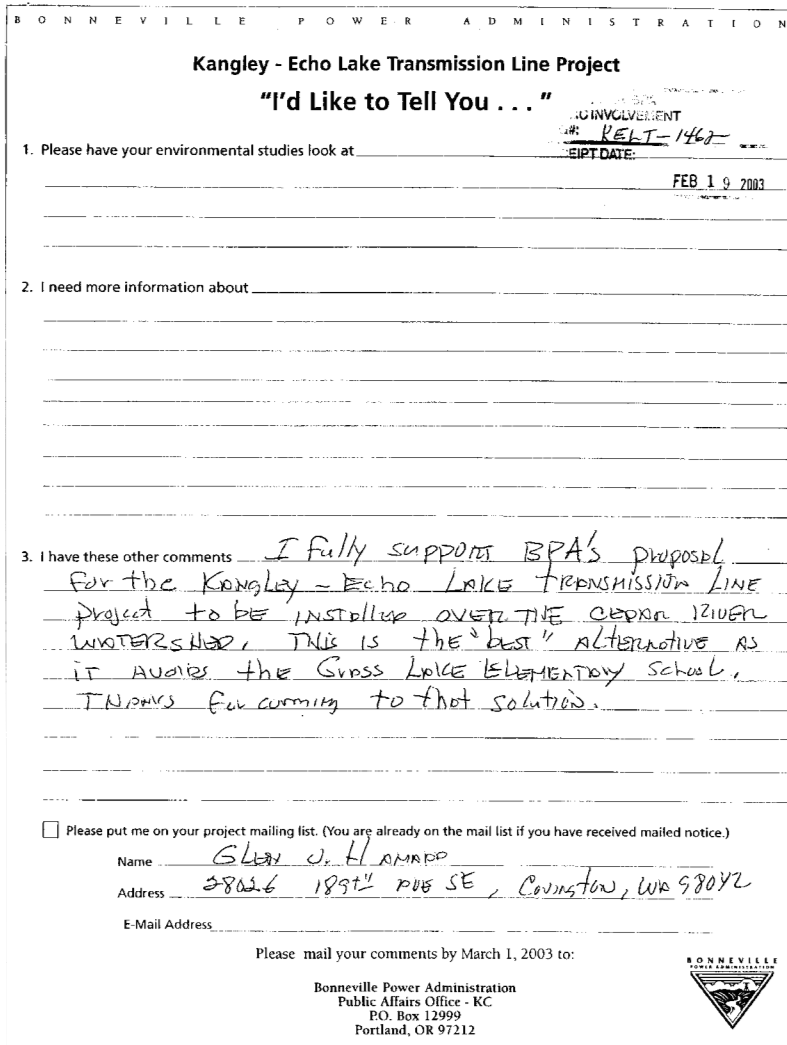 BONNEVILLE POWER ADMINISTRATION
Kangley - Echo Lake Transmission Line Project
"I'd Like to Tell You . . . "
INVOLVEMENT
#: KELT-1462
EIPT DATE:
1. Please have your environmental studies look at
FEB 1 9 2003
2. I need more information about
3. I have these other comments I fully support BPA's proposal
for the Kangley - Echo Lake Transmission Line
project to be installed over the Cedar River
Watershed, This is the "best" alternative as
it avoids the Grass Lake Elementary School,
Thanks for comming to that solution.
Please put me on your project mailing list. (You are already on the mail list if you have received mailed notice.)
Name Glen
Address 28026 189th Ave SE, Covington, WA 98042
E-Mail Address
Please mail your comments by March 1, 2003 to:
BONNEVILLE
POWER ADMINISTRATION
Bonneville Power Administration
Public Affairs Office - KC
P.O. Box 12999
Portland, OR 97212